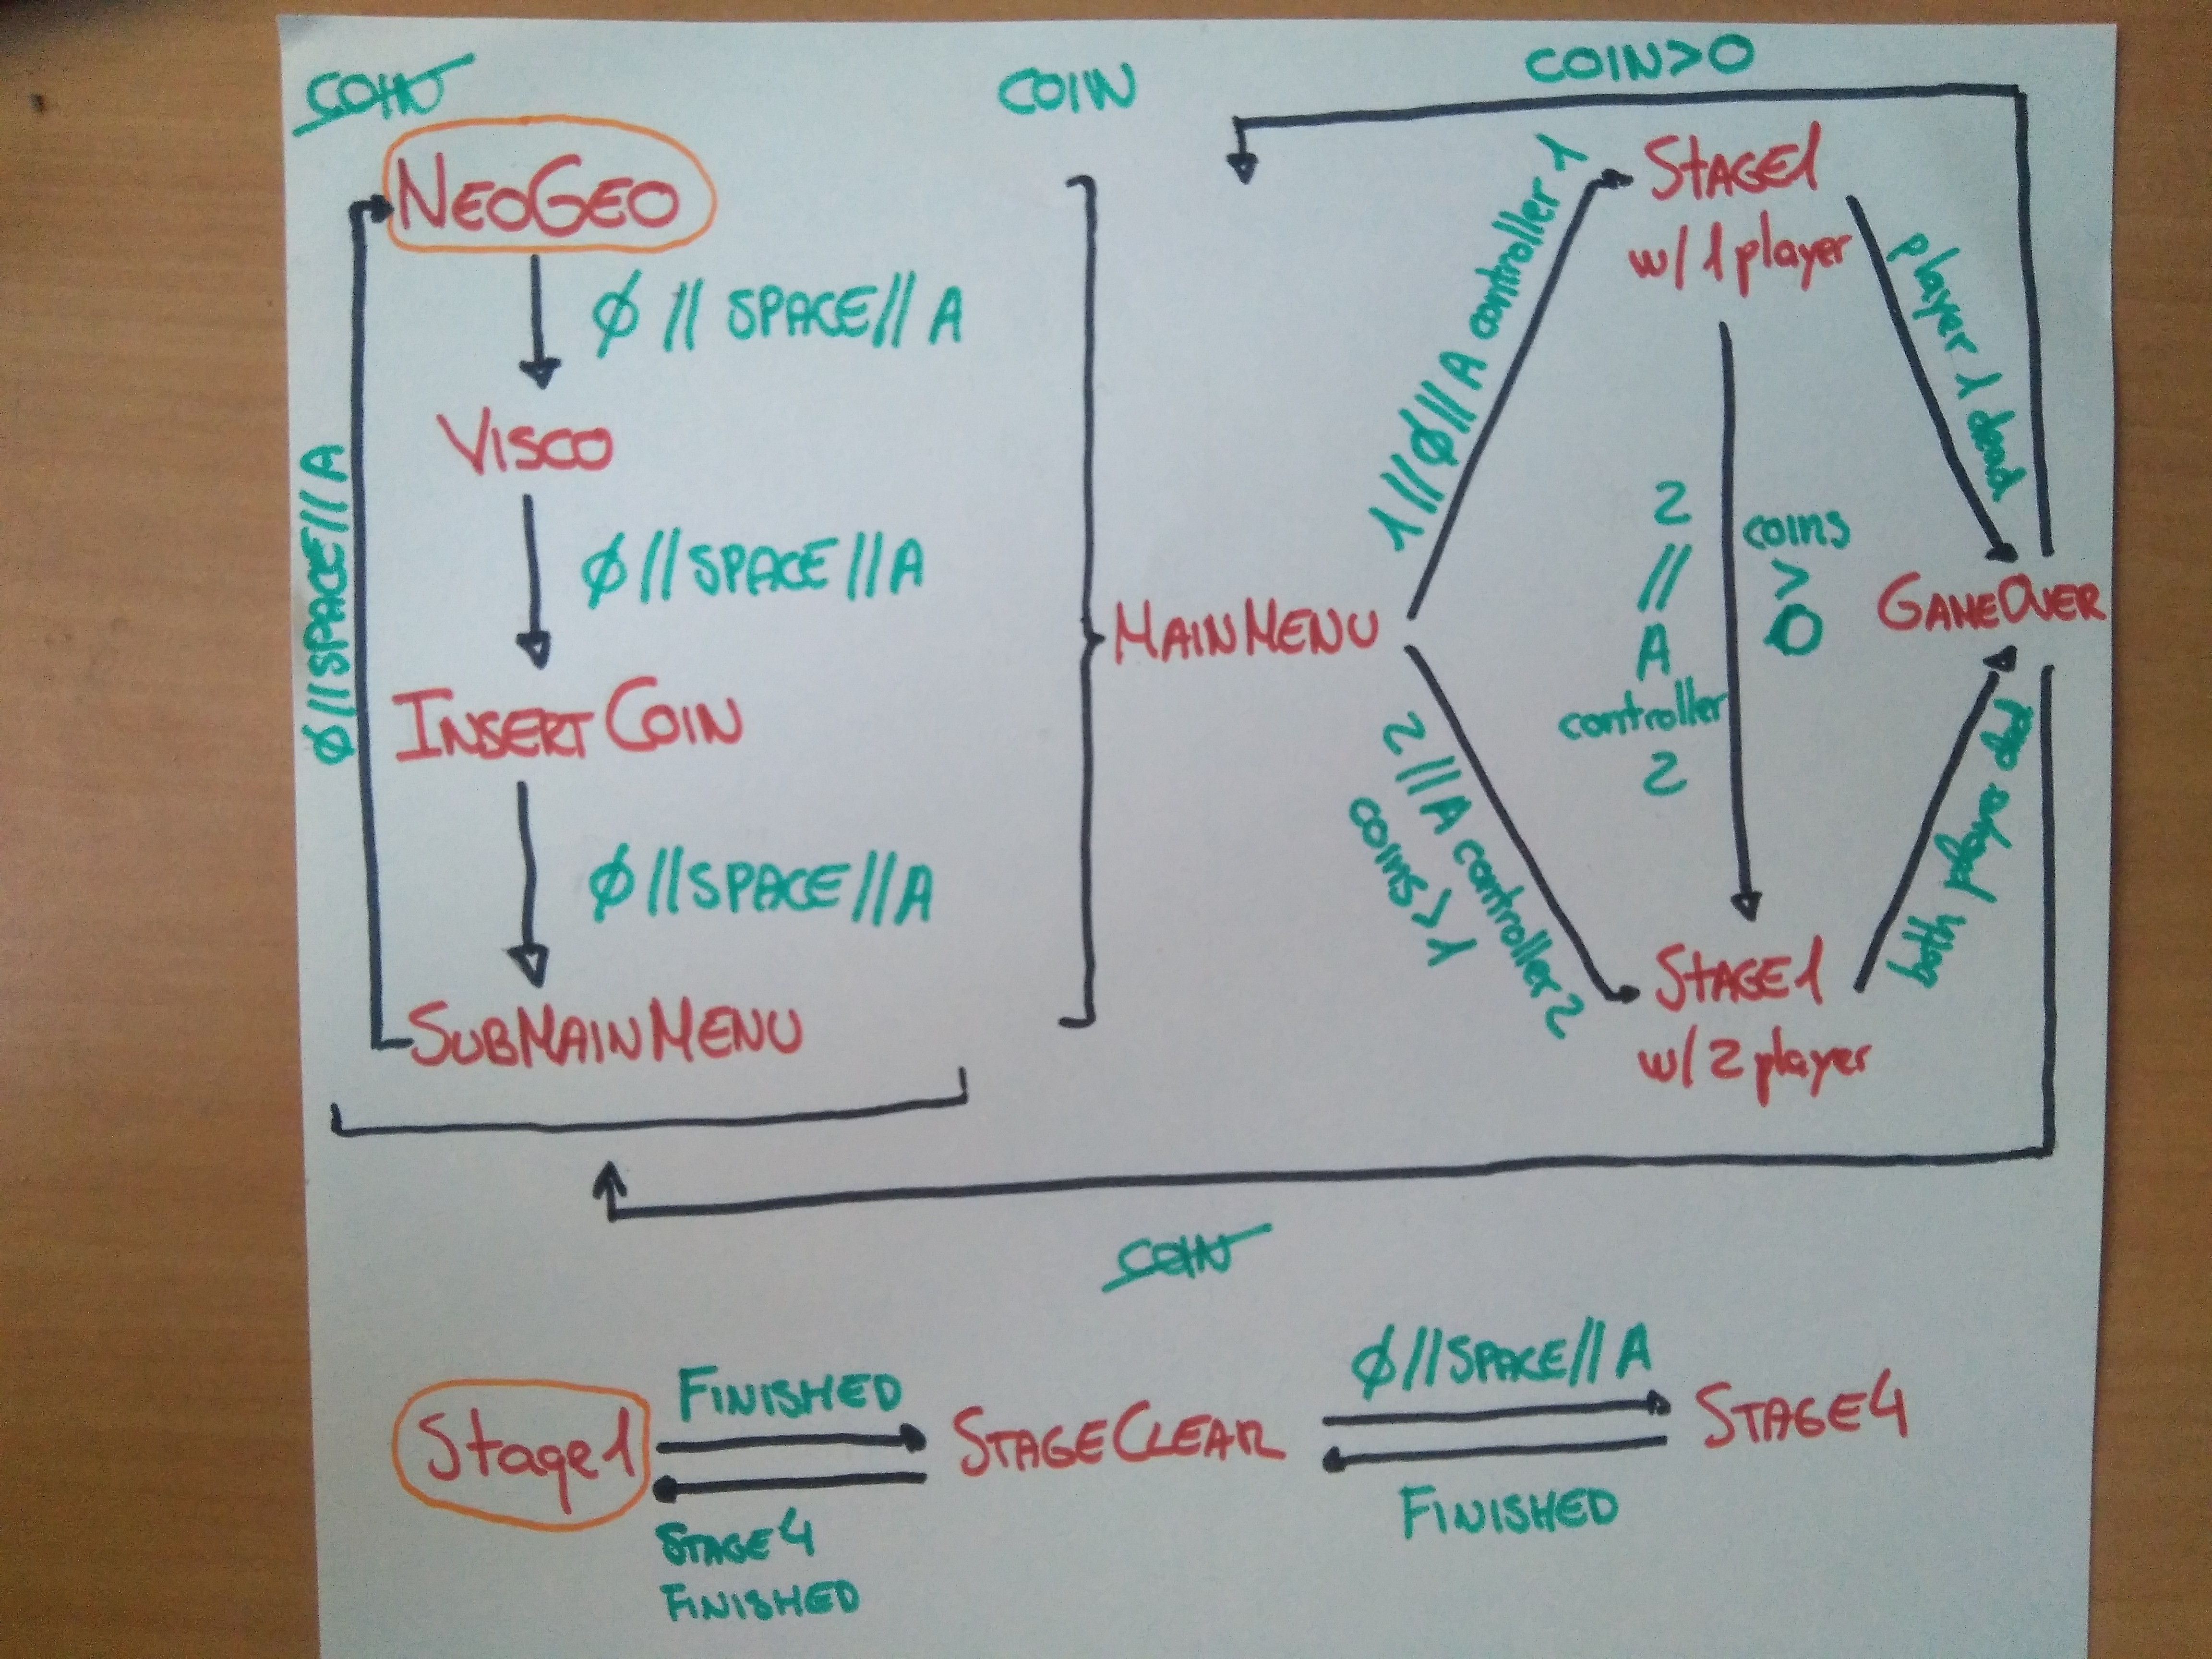 COIN
COIN
COIN>0
NEOGEO
Ø // SPACE // A
VISCO
Ø // SPACE // A
INSERT COIN
Ø // SPACE // A
SUBMAINMENU
Ø // SPACE // A
MAINMENU
1 // Ø // A controller 1
STAGE1
w/ 1 player
player 1 dead
2
//
A
controller
2
coins
>
0
GAMEOVER
2 // A controller 2
coins > 1
STAGE1
w/ 2 player
both players dead
COIN
Stage1
FINISHED
STAGECLEAR
Ø // SPACE // A
STAGE4
STAGE4
FINISHED
FINISHED